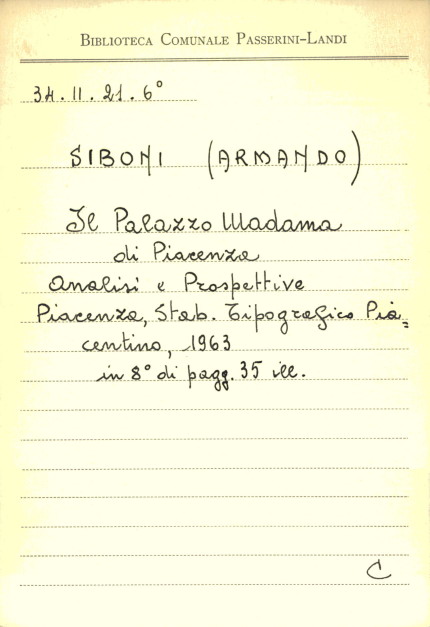 BIBLIOTECA COMUNALE PASSERINI-LANDI
34.II.21.6°
SIBONI (ARMANDO)
Il Palazzo Madama
di Piacenza
Analisi e Prospettive
Piacenza, Stab. Tipografico Pia=
centino, 1963
in 8° di pagg. 35 ill.
C